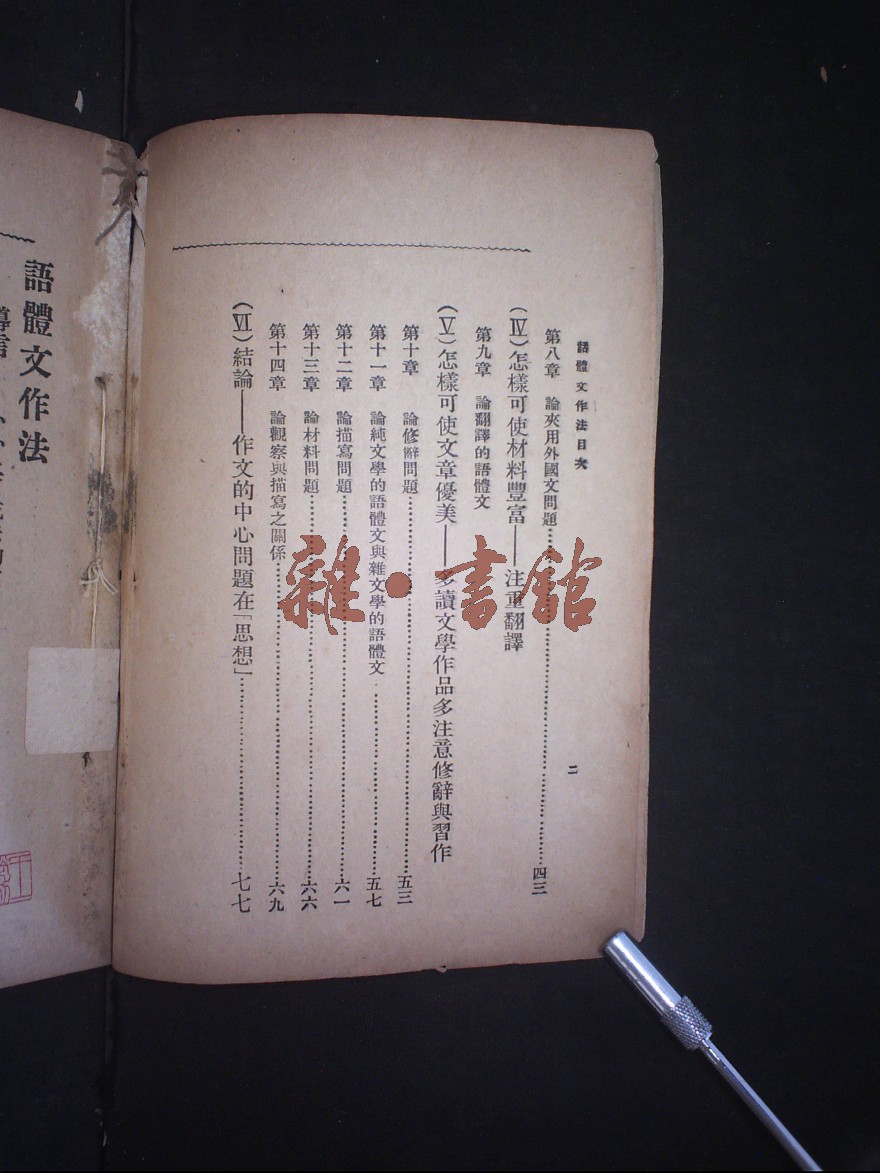 語體文作法目次
二
第八章　論夾用外國文問題……四三
（Ⅳ）怎樣可使材料豐富——注重翻譯
第九章　論翻譯的語體文
（Ⅴ）怎樣可使文章優美——多讀文學作品多注意修辭與習作
第十章　論修辭問題……五三
第十一章　論純文學的語體文與雜文學的語體文……五七
第十二章　論描寫問題……六一
第十三章　論材料問題……六六
第十四章　論觀察與描寫之關係……六九
（Ⅵ）結論——作文的中心問題在「思想」……七七
語體文作法
雜·書館